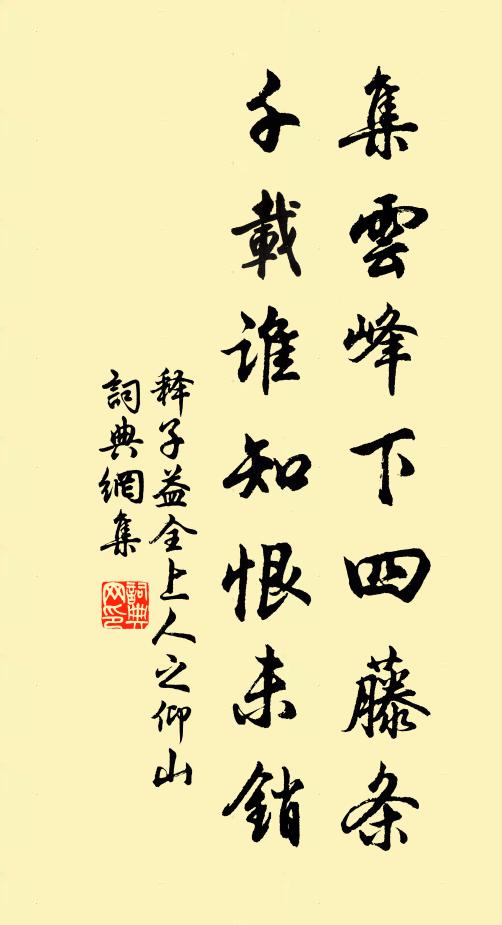 集雲峰下四藤条
千載誰知恨未銷
释子益全上人之仰山
詞典網集
詞典网印